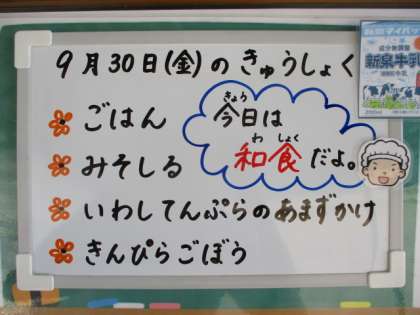 9月30日(金)のきゅうしょく
ごはん
みそしる
いわしてんぷらのあまずかけ
きんぴらごぼう
きょう
今日は
わ しょく
和食だよ。
新泉牛乳